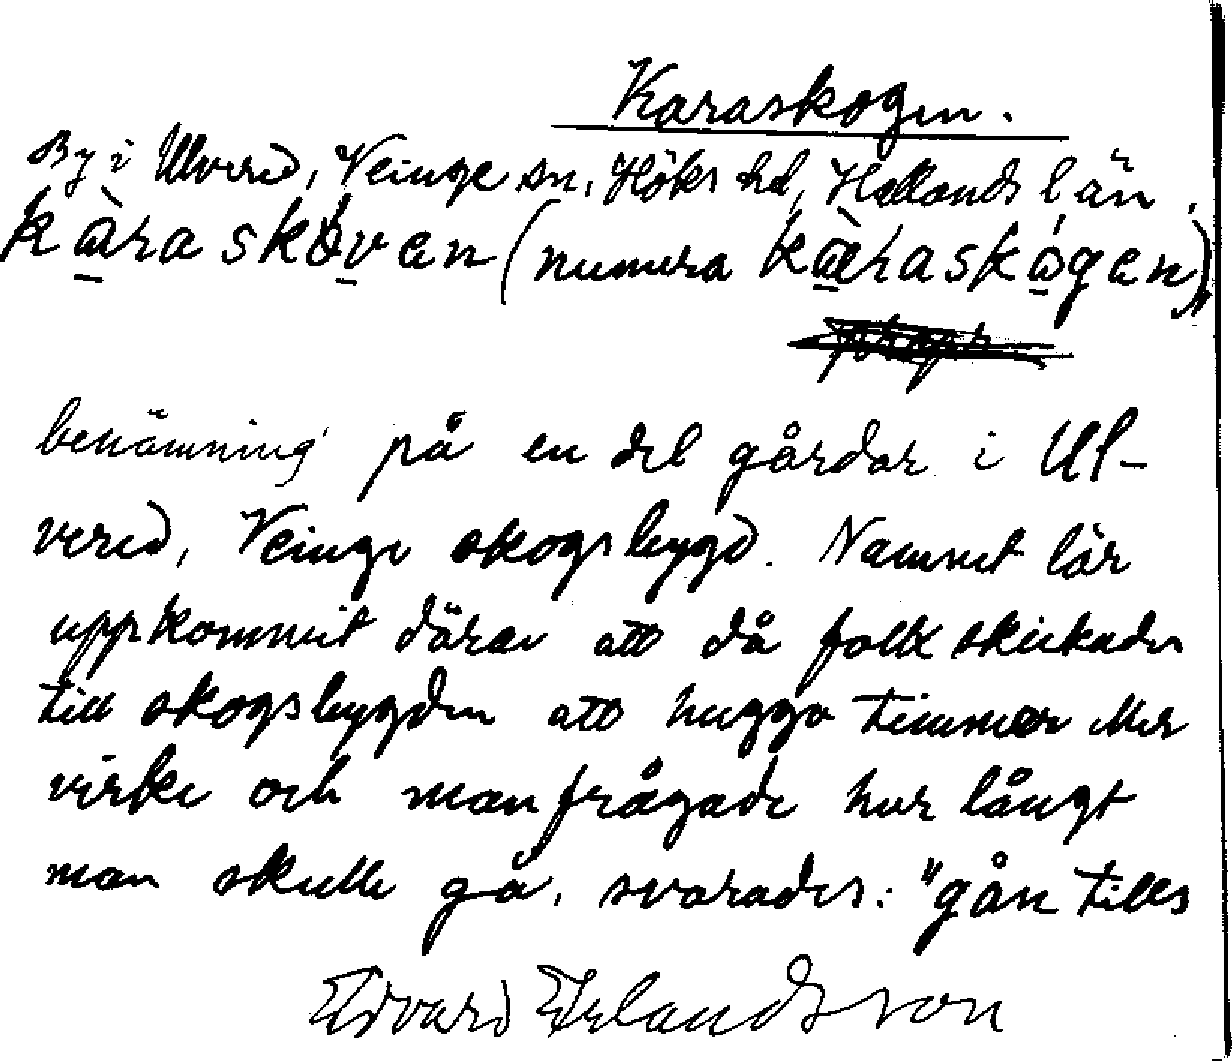 Karaskogen.
By i Ulvered, Veinge sn, Höks hd, Hallands län.
kàraskòvan (numera kàraskógen),
benämning på en del gårdar i Ul-
vered, Veinge skogsbygd. Namnet lär
uppkommit därav att då folk skickades
till skogsbygden att hugga timmer eller
virke och man frågade hur långt
man skulle gå, svarades: "gån tills
Edvard Erlandsson